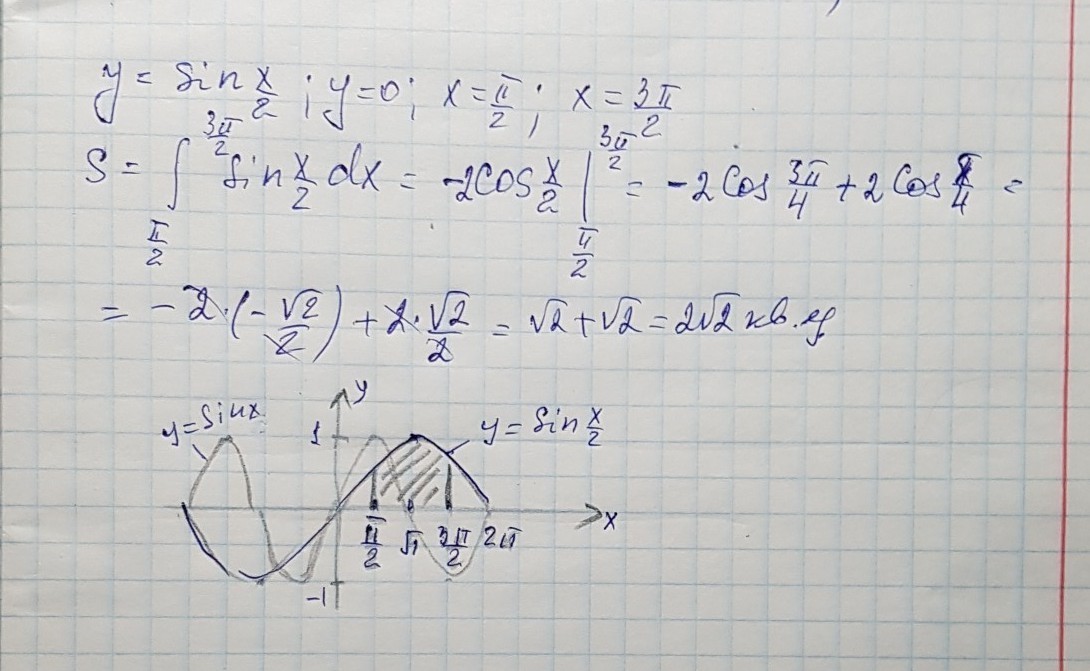 y = sin x/2 ; y=0; x = π/2 ; x = 3π/2
S = ∫_{π/2}^{3π/2} sin x/2 dx = -2cos x/2 |_{π/2}^{3π/2} = -2 cos 3π/4 + 2 cos π/4 =
= -2·(-√2/2) + 2·√2/2 = √2 + √2 = 2√2 кв.ед
y
y=sinx
1
y = sin x/2
x
π/2 π 3π/2 2π
-1